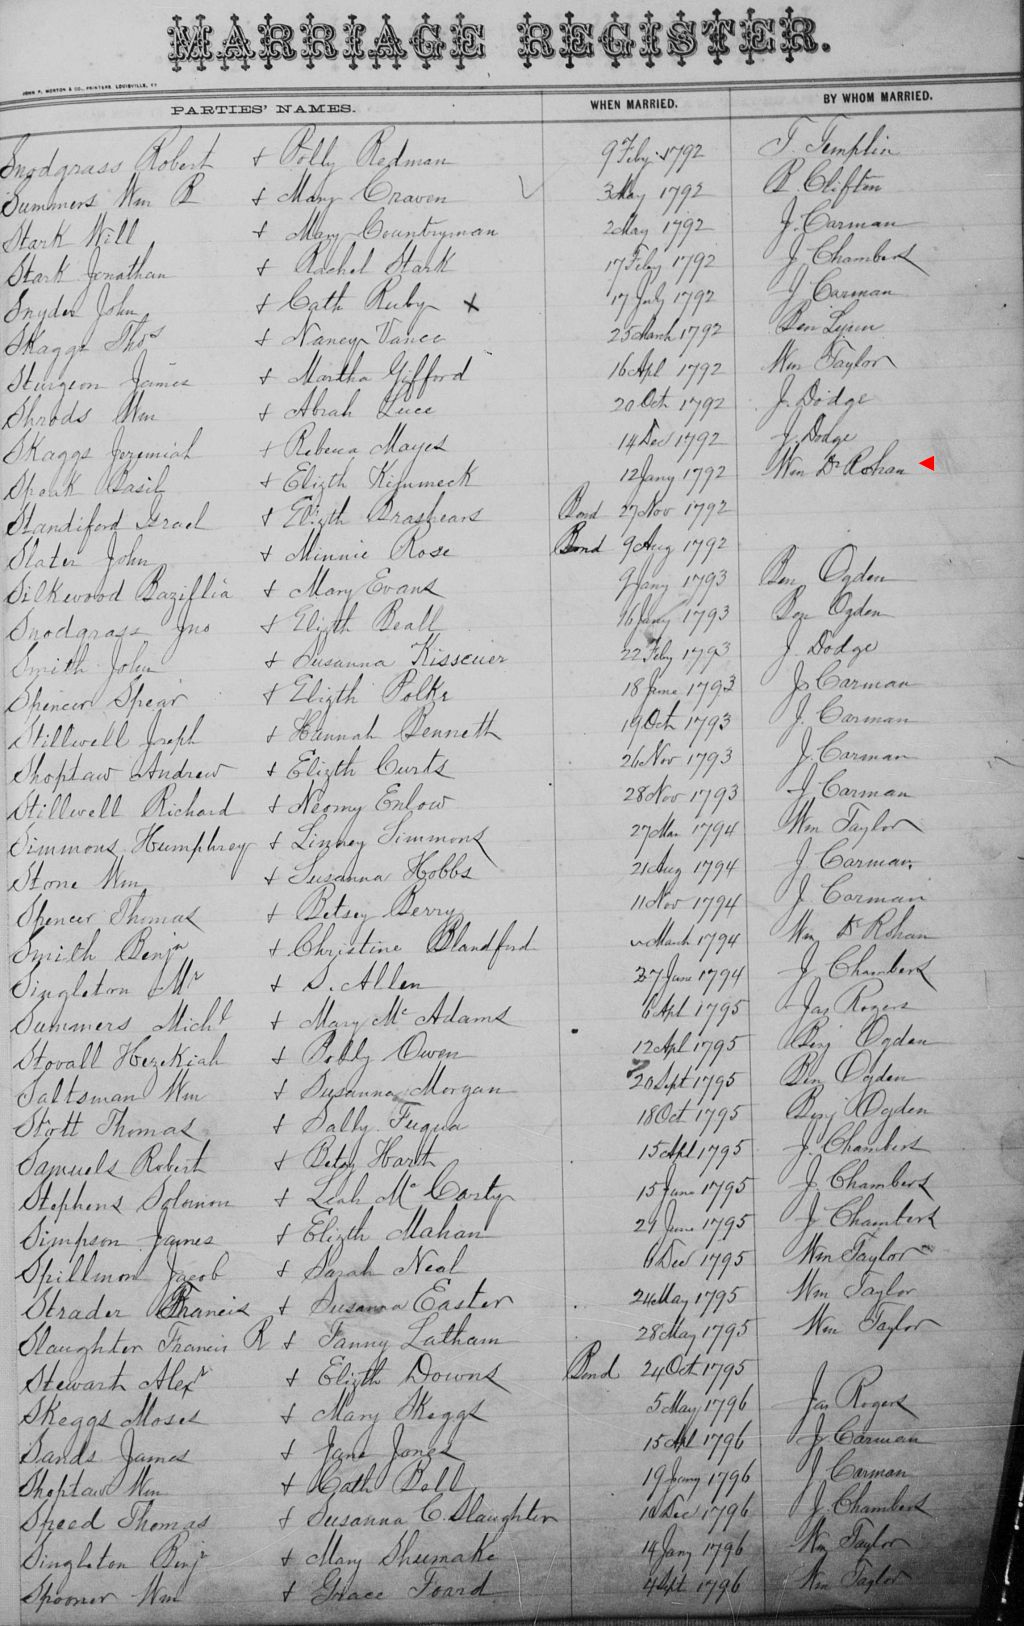 MARRIAGE REGISTER.
JOHN P. MORTON & CO., PRINTERS, LOUISVILLE, KY
PARTIES' NAMES. WHEN MARRIED. BY WHOM MARRIED.
Snodgrass Robert & Polly Redman 9 Feby 1792 T. Templin
Summers Wm R & Mary Craven 3 May 1792 B. Clifton
Stark Will & Mary Countryman 2 May 1792 J. Carman
Stark Jonathan & Rachel Stark 17 Feby 1792 J Chambers
Snyder John & Cath Ruby X 17 July 1792 J Carman
Skaggs Thos & Nancy Vance 25 March 1792 Ben Lynn
Sturgeon James & Martha Gifford 16 Apl 1792 Wm Taylor
Shrods Wm & Abrah Luce 20 Oct 1792 J. Dodge
Skaggs Jeremiah & Rebecca Mayes 14 Dec 1792 J. Dodge
Speak Basil & Elizth 12 Jany 1792 Wm De Rohan
Standiford Israel & Elizth Brashears Bond 27 Nov 1792
Slater John & Minnie Rose Bond 9 Aug 1792
Silkwood Baziflia & Mary Evans 9 Jany 1793 Ben Ogden
Snodgrass Jno & Elizth Beall 16 Jany 1793 Ben Ogden
Smith John & Susanna Kisseuer 22 Feby 1793 J Dodge
Spencer Spear & Elizth Polke 18 June 1793 J. Carman
Stillwell Joseph & Hannah Benneth 19 Oct 1793 J. Carman
Shoptaw Andrew & Elizth Curts 26 Nov 1793 J. Carman
Stillwell Richard & Neomy Enlow 28 Nov 1793 J Carman
Simmons Humphrey & Linney Simmons 27 Mar 1794 Wm Taylor
Stone Wm & Susanna Hobbs 21 Aug 1794 J Carman
Spencer Thomas & Betsey Berry 11 Nov 1794 J Carman
Smith Benjn & Christine Blandford March 1794 Wm De Rohan
Singleton Mr & S. Allen 27 June 1794 J Chambers
Summers Michl & Mary Mc Adams 6 Apl 1795 Jas Rogers
Stovall Hezekiah & Polly Owen 12 Apl 1795 Benj Ogden
Saltsman Wm & Susanna Morgan 20 Sept 1795 Benj Ogden
Stott Thomas & Sally Fuqua 18 Oct 1795 Benj Ogden
Samuels Robert & Betsy Hart 15 Apl 1795 J. Chambers
Stephens Solomon & Leah Mc Carty 15 June 1795 J. Chambers
Simpson James & Elizth Mahan 29 June 1795 J Chambers
Spillmon Jacob & Sarah Neal 6 Dec 1795 Wm Taylor
Strader Francis & Susanna Easter 24 May 1795 Wm Taylor
Slaughter Francis R & Fanny Latham 28 May 1795 Wm Taylor
Stewart Alexr & Elizth Downs Bond 24 Oct 1795
Skeggs Moses & Mary Skeggs 5 May 1796 Jas Rogers
Sands James & Jane Jones 15 Apl 1796 J Carman
Shoptaw Wm & Cath Bell 19 Jany 1796 J Carman
Speed Thomas & Susanna C. Slaughter Dec 1796 J. Chambers
Singleton Benj & Mary Shumake 14 Jany 1796 Wm Taylor
Spooner Wm & Grace Foard 4 Sept 1796 Wm Taylor